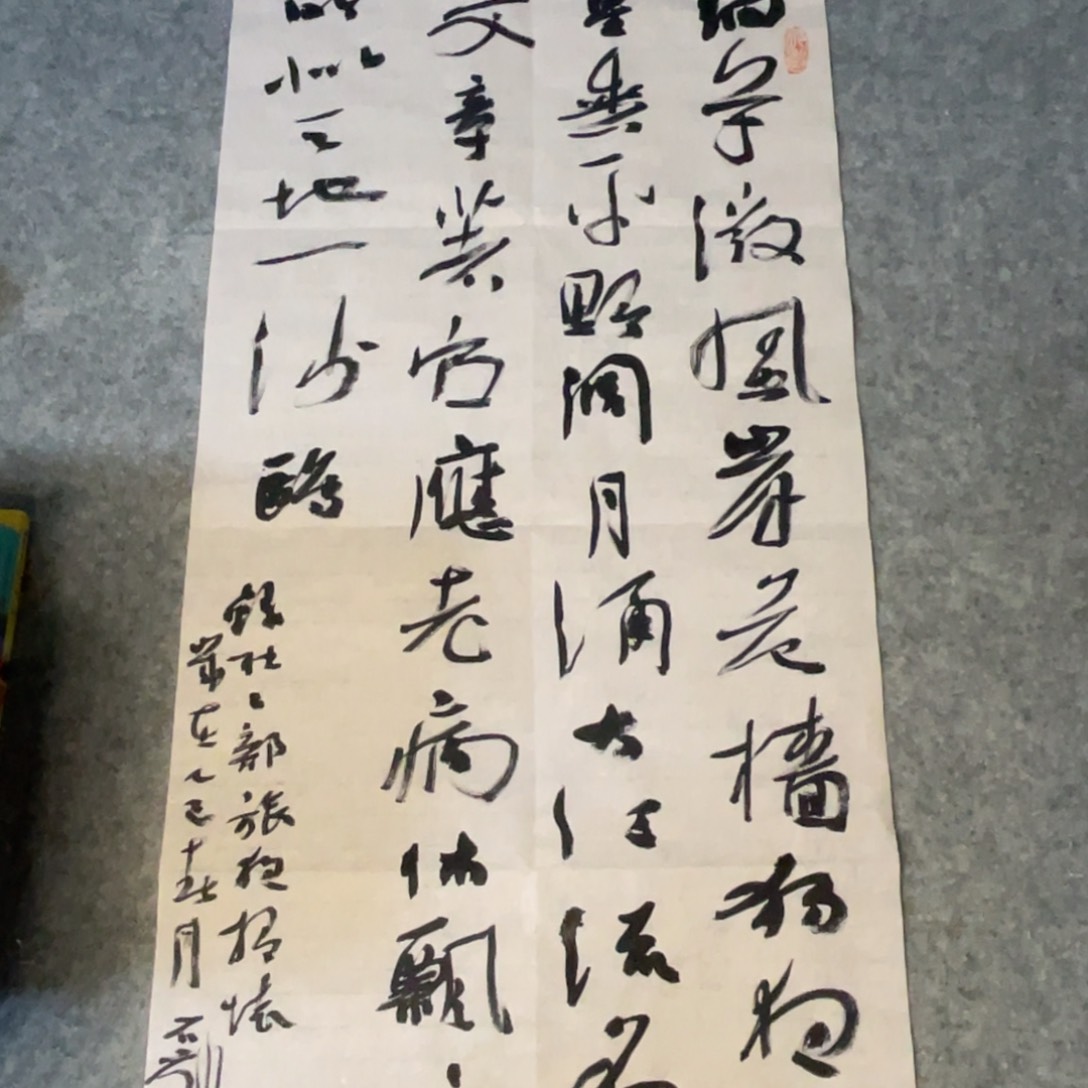 細草微風岸危檣獨夜
星垂平野闊月涌大江流名
文章著官應老病休飄
所似天地一沙鷗
錄杜工部旅夜抒懷
歲在乙巳月